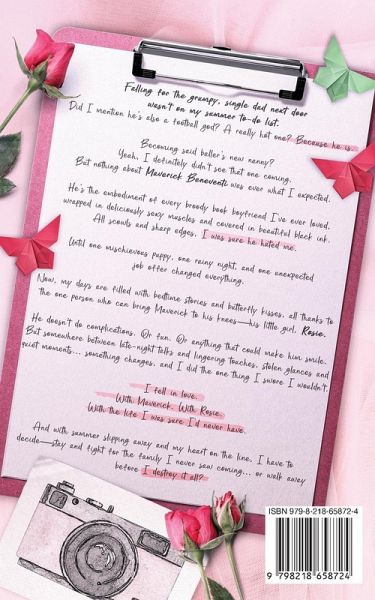 Falling for the grumpy, single dad next door
wasn't on my summer to-do list.
Did I mention he's also a football god? A really hot one? Because he is.
Becoming said baller's new nanny?
Yeah, I definitely didn't see that one coming.
But nothing about Maverick Beneventi was ever what I expected.
He's the embodiment of every broody book boyfriend I've ever loved,
wrapped in deliciously sexy muscles and covered in beautiful black ink.
All scowls and sharp edges, I was sure he hated me.
Until one mischievous puppy, one rainy night, and one unexpected
job offer changed everything.
Now, my days are filled with bedtime stories and butterfly kisses, all thanks to
the one person who can bring Maverick to his knees—his little girl, Rosie.
He doesn't do complications. Or fun. Or anything that could make him smile.
But somewhere between late-night talks and lingering touches, stolen glances and
quiet moments... something changed, and I did the one thing I swore I wouldn't.
I fell in love.
With Maverick. With Rosie.
With the life I was sure I'd never have.
And with summer slipping away and my heart on the line, I have to
decide—stay and fight for the family I never saw coming... or walk away
before I destroy it all?
ISBN 979-8-218-65872-4
9 798218 658724